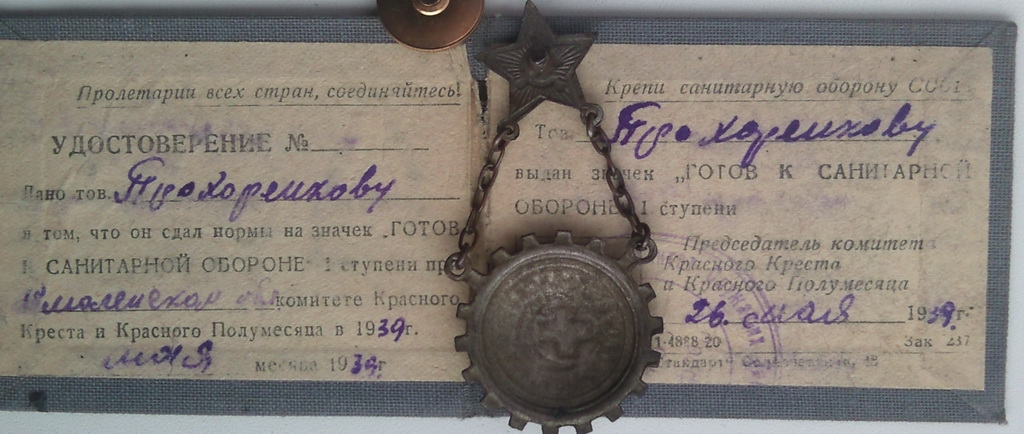 Пролетарии всех стран, соединяйтесь!
УДОСТОВЕРЕНИЕ №
Дано тов. Прохоренкову
в том, что он сдал нормы на значек „ГОТОВ
К САНИТАРНОЙ ОБОРОНЕ" 1 ступени при
комитете Красного
Креста и Красного Полумесяца в 1939г.
мая месяца 1939г
Крепи санитарную оборону СССР
Тов. Прохоренкову
выдан значек „ГОТОВ К САНИТАРНОЙ
ОБОРОНЕ 1 ступени
Председатель комитета
Красного Креста
и Красного Полумесяца
26. мая 1939г.
1-4888-20 Зак 237